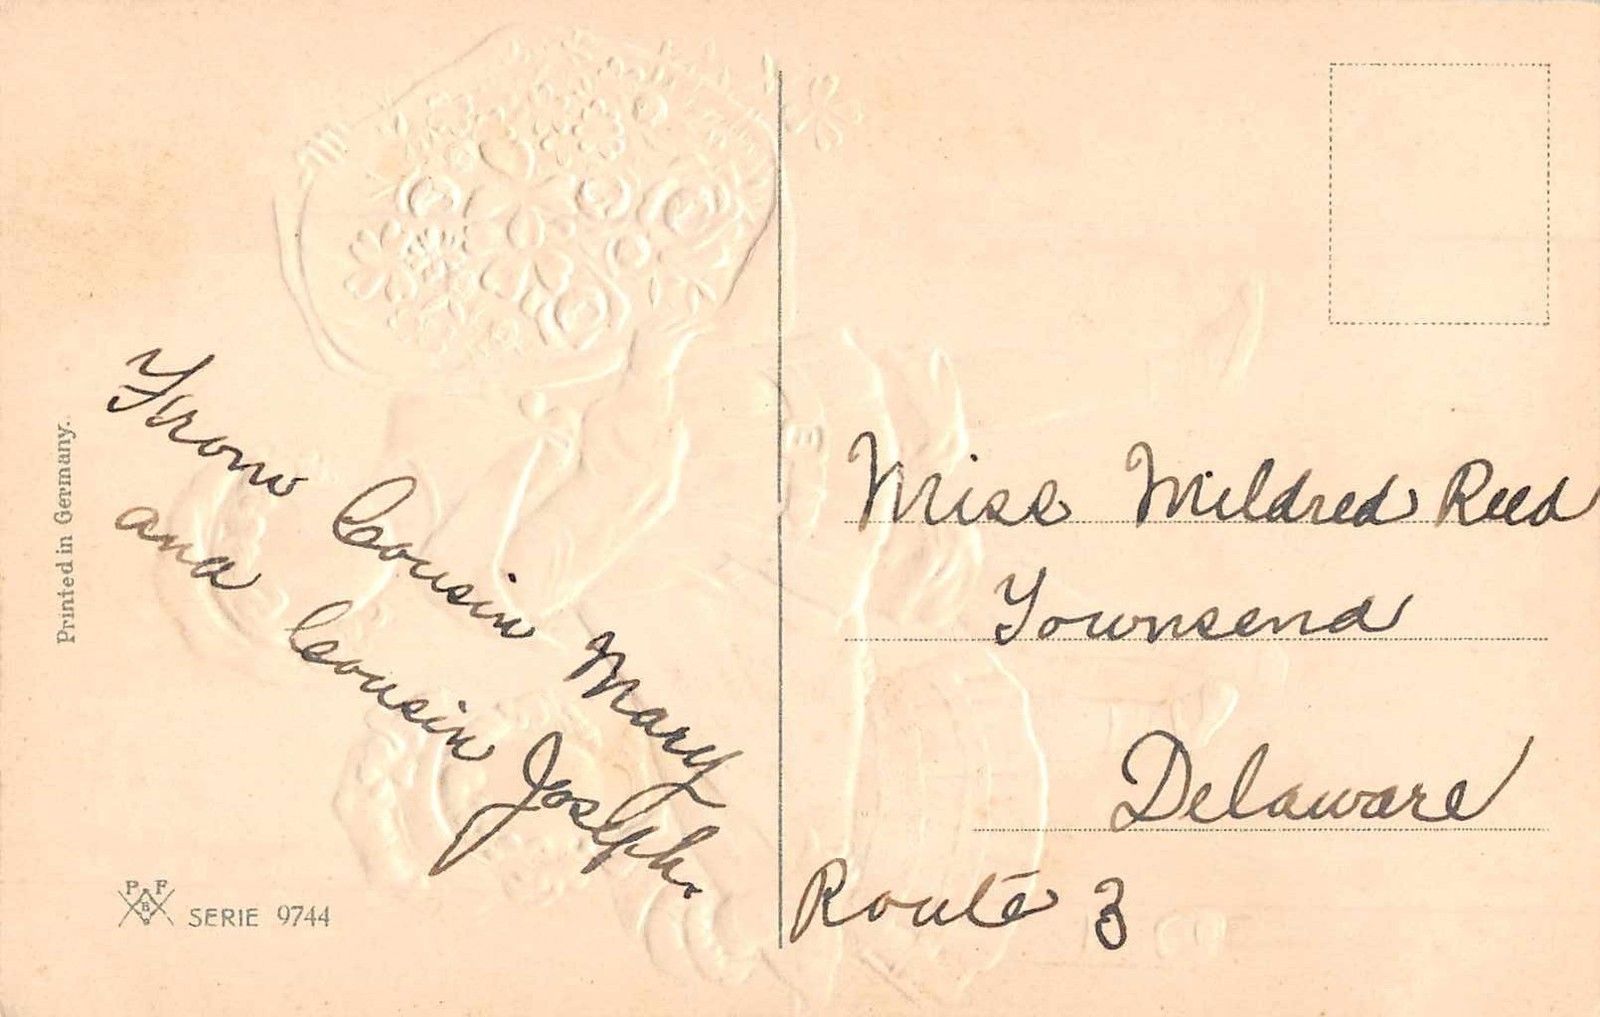 Printed in Germany.
From Cousin Mary
and Cousin Joseph.
P F
B
SERIE 9744
Miss Mildred Reed
Townsend
Delaware
Route 3